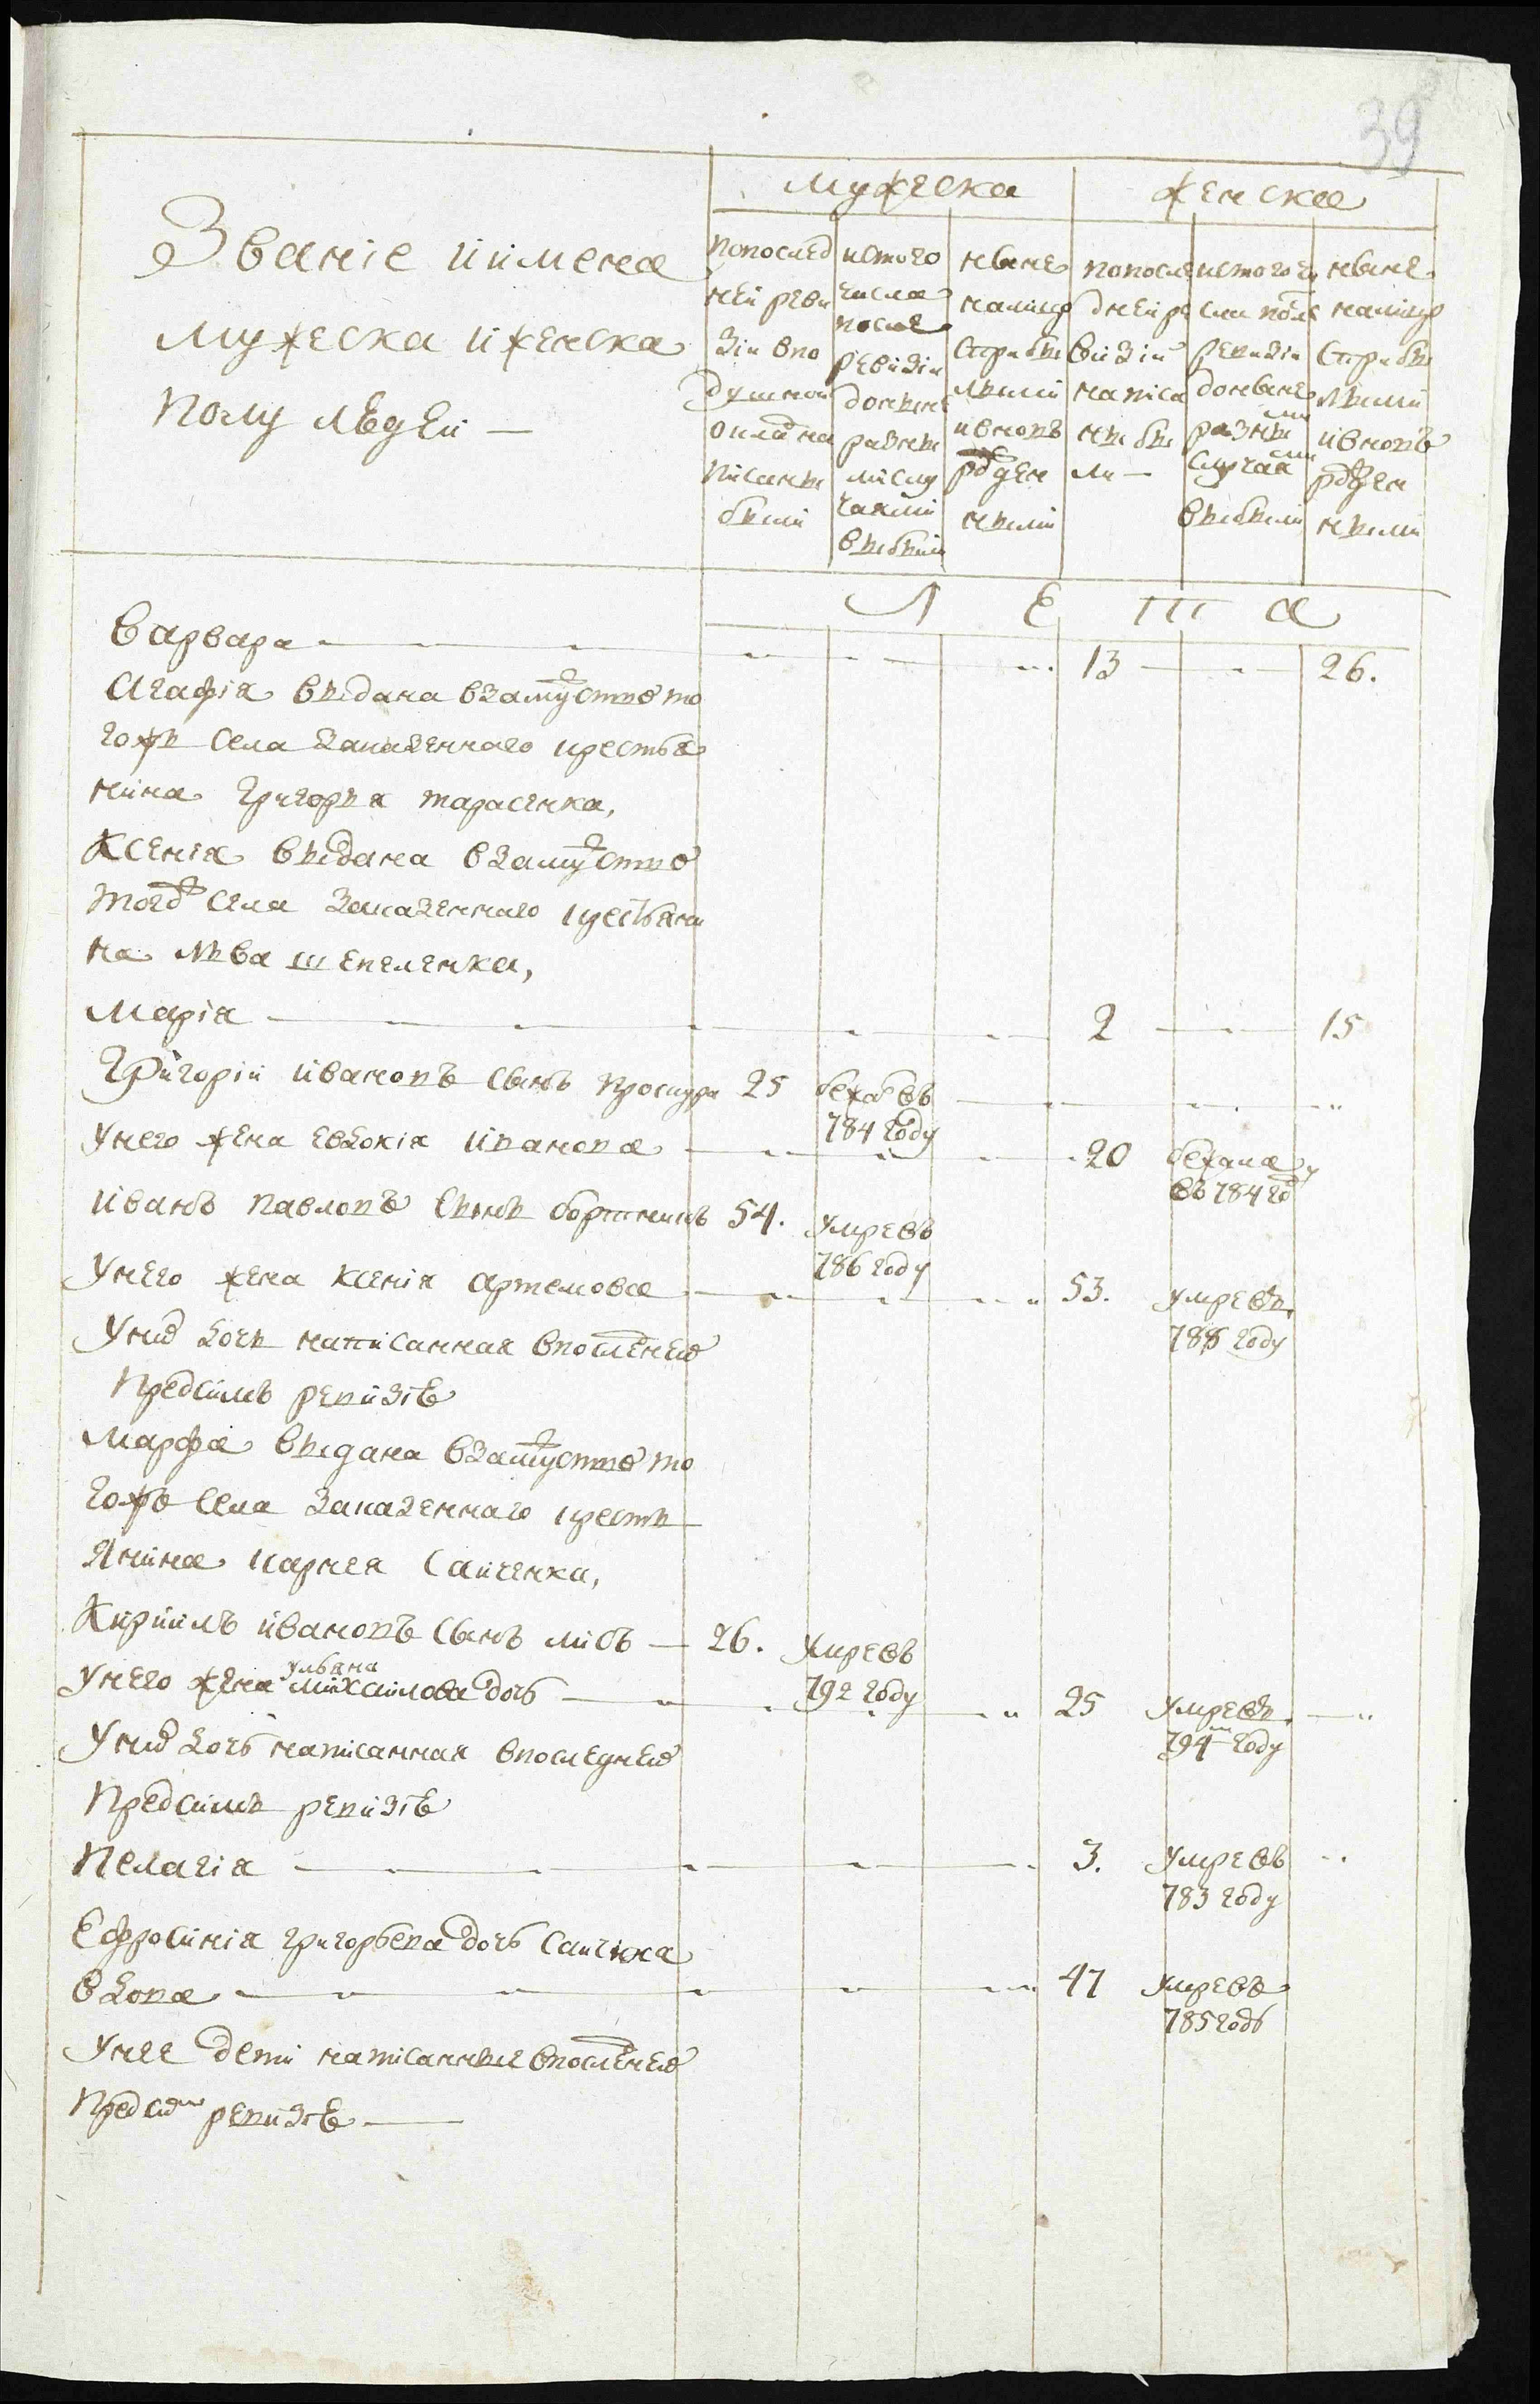 39
Званіе иимена
мужеска иженска
полу людей —
мужеска
женска
попослед
ней реви
зіи впо
душной
оклад на
писаны
были
истого
числа
после
ревизіи
доныне
разны
мислу
чаями
выбыли
ныне
налицо
Стприбы
лыми
ивновь
рожден
ными
попосле
дней ре
визіи
написа
ны бы
ли —
истогочи
сла после
ревизіи
доныне
разными
случаями
выбыли
ныне
налицо
Стприбы
лыми
ивновь
рожден
ными
Л е т а
Варвара 13 26.
Агафія выдана взамужство то
гожъ села казеннаго крестья
нина Григорья тарасенка,
Ксенія выдана взамужство
тогож села казеннаго крестьяни
на Льва шепеленка,
Марія 2 15
Григорій ивановъ сынъ Проскура 25 бежавъ
784 году
унего жена евдокія иванова 20 бежала
въ 784 году
иванъ павловъ сынъ бортникъ 54. умревъ
786 году
унего жена ксенія артемова 53. умревъ
788 году
уних дочь написанная впоследней
предсимъ ревизіе
марфа выдана взамужство то
гожъ села казеннаго кресть
янина карнея саиченка,
Кирилъ ивановъ сынъ 26. умревъ
792 году
ульяна
унего жена михаилова дочь 25 умревъ
794 году
уних дочь написанная впоследней
предсимъ ревизіе
Пелагія 3. умревъ
783 году
Ефросинія григорьева дочь
вдова 47 умревъ
785 годъ
унее дети написанные впоследней
предсим ревизіе —